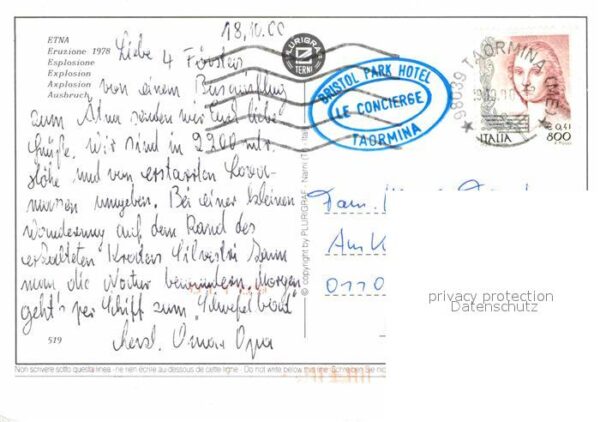 18.10.00
ETNA
Eruzione 1978
Esplosione
Explosion
Explosion
Ausbruch
Liebe 4 Försters
von einem Busausflug
zum Ätna senden wir Euch liebe
Grüße. Wir sind in 2300 mtr.
Höhe und von erstarrten Lava-
massen umgeben. Bei einer kleinen
Wanderung auf dem Rand des
erkalteten Kraters Silvestri kann
man die Natur bewundern. Morgen
geht's per Schiff zum "Schwefelbad"
Herzl. Oma + Opa
519
PLURIGRAF
TERNI
BRISTOL PARK HOTEL
LE CONCIERGE
TAORMINA
98039 TAORMINA (ME)
€ 0,41
800
ITALIA
© copyright by PLURIGRAF - Narni (Terni)
Fam.
Am K
0110
privacy protection
Datenschutz
Non scrivere sotto questa linea - ne rien écrire au dessous de cette ligne - Do not write below this line - Schreiben Sie nicht